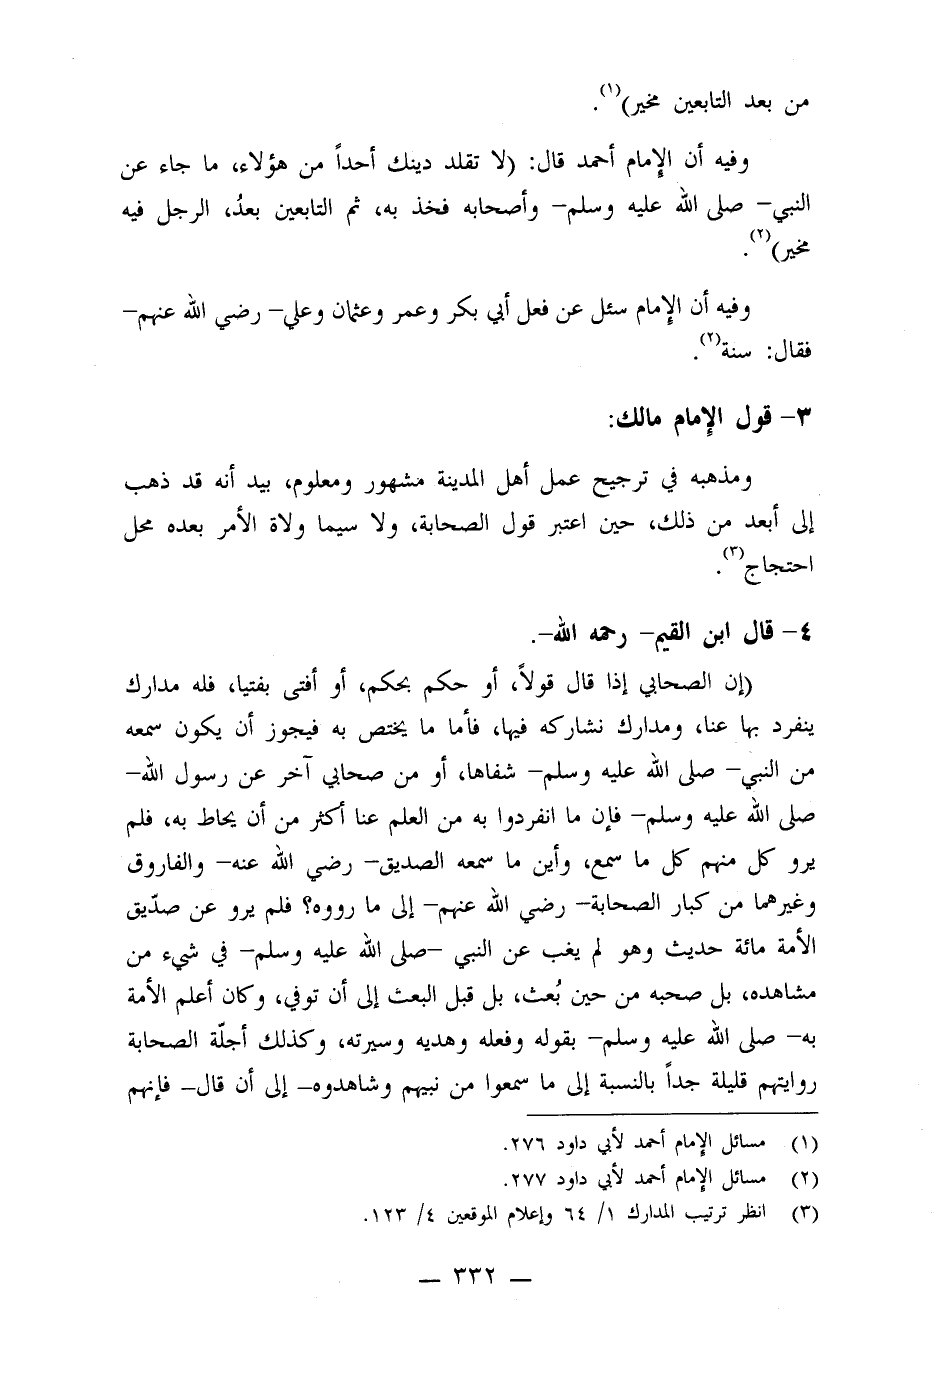 من بعد التابعين مخير)(١).
وفيه أن الإمام أحمد قال: (لا تقلد دينك أحداً من هؤلاء، ما جاء عن
النبي– صلى الله عليه وسلم– وأصحابه فخذ به، ثم التابعين بعدُ، الرجل فيه
مخير)(٢).
وفيه أن الإمام سئل عن فعل أبي بكر وعمر وعثمان وعلي– رضي الله عنهم–
فقال: سنة(٢).
٣– قول الإمام مالك:
ومذهبه في ترجيح عمل أهل المدينة مشهور ومعلوم، بيد أنه قد ذهب
إلى أبعد من ذلك، حين اعتبر قول الصحابة، ولا سيما ولاة الأمر بعده محل
احتجاج(٣).
٤– قال ابن القيم– رحمه الله–.
(إن الصحابي إذا قال قولاً، أو حكم بحكم، أو أفتى بفتيا، فله مدارك
ينفرد بها عنا، ومدارك نشاركه فيها، فأما ما يختص به فيجوز أن يكون سمعه
من النبي– صلى الله عليه وسلم– شفاها، أو من صحابي آخر عن رسول الله–
صلى الله عليه وسلم– فإن ما انفردوا به من العلم عنا أكثر من أن يحاط به، فلم
يرو كل منهم كل ما سمع، وأين ما سمعه الصديق– رضي الله عنه– والفاروق
وغيرهما من كبار الصحابة– رضي الله عنهم– إلى ما رووه؟ فلم يرو عن صدّيق
الأمة مائة حديث وهو لم يغب عن النبي –صلى الله عليه وسلم– في شيء من
مشاهده، بل صحبه من حين بُعث، بل قبل البعث إلى أن توفي، وكان أعلم الأمة
به– صلى الله عليه وسلم– بقوله وفعله وهديه وسيرته، وكذلك أجلّة الصحابة
روايتهم قليلة جداً بالنسبة إلى ما سمعوا من نبيهم وشاهدوه– إلى أن قال– فإنهم
(١) مسائل الإمام أحمد لأبي داود ٢٧٦.
(٢) مسائل الإمام أحمد لأبي داود ٢٧٧.
(٣) انظر ترتيب المدارك ١/ ٦٤ وإعلام الموقعين ٤/ ١٢٣.
– ٣٣٢ –